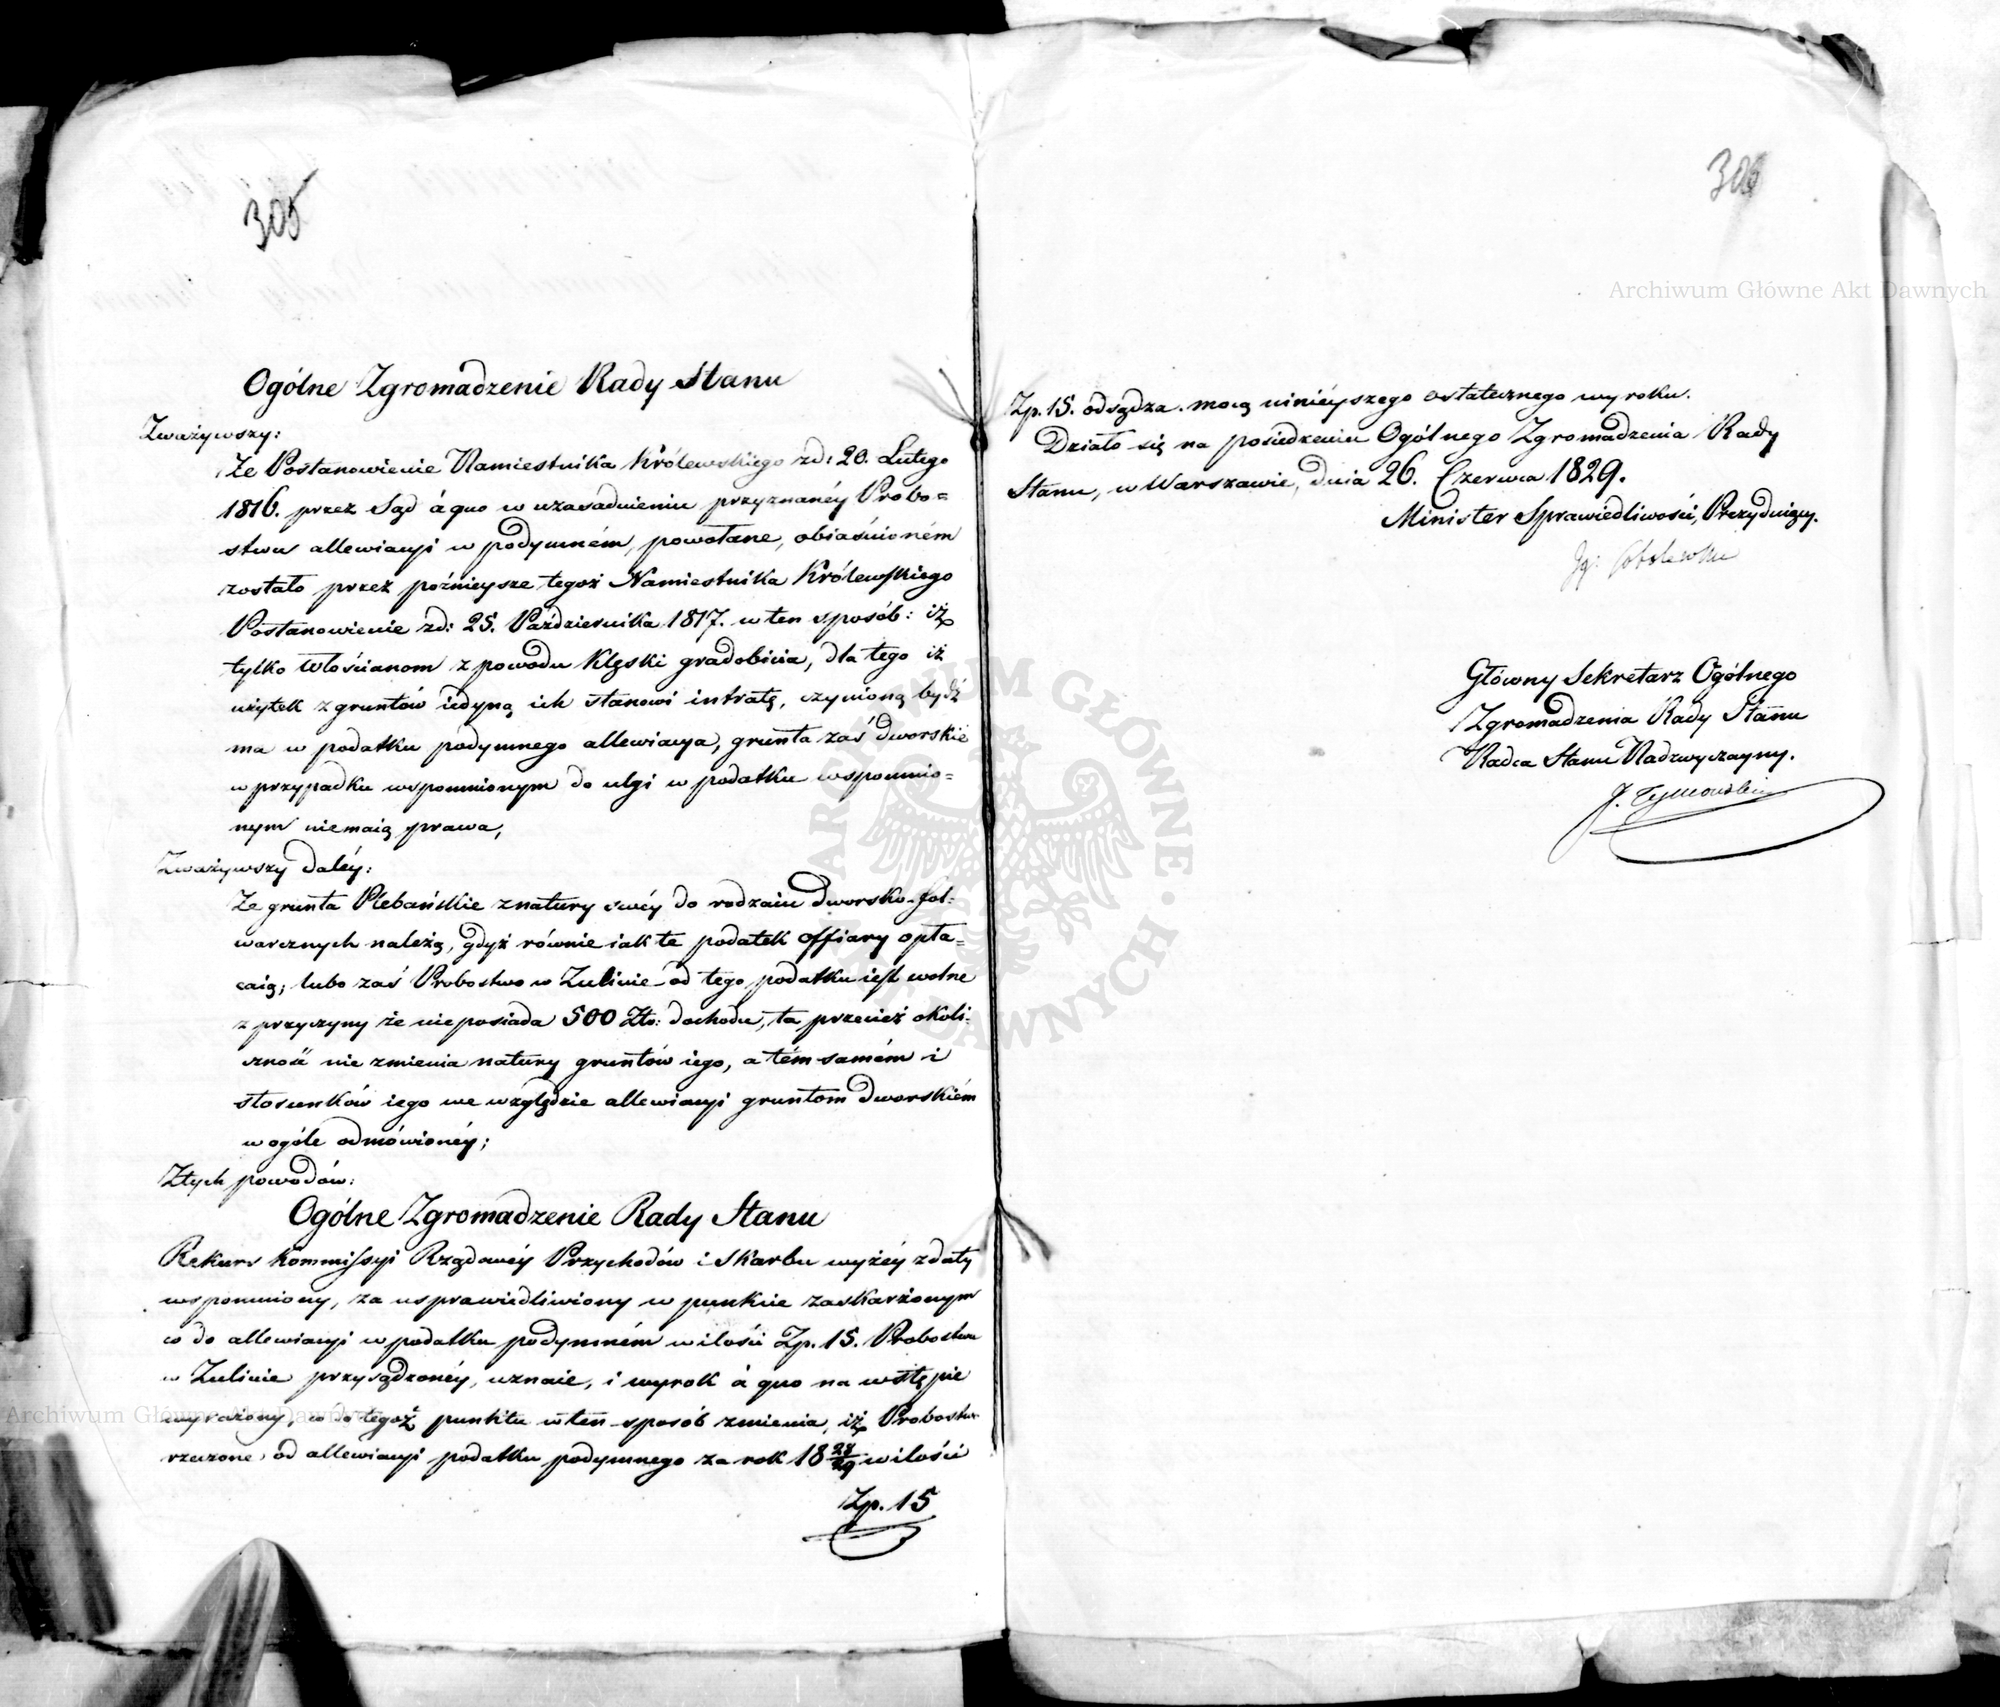 305
Ogólne Zgromadzenie Rady Stanu
Zważywszy:
Że Postanowienie Namiestnika Królewskiego zd: 20. Lutego
1816. przez Sąd á quo w uzasadnieniu przyznanéy Probo=
stwu allewiacyi w podymném, powołane, obiaśnioném
zostało przez poźnieysze tegoż Namiestnika Królewskiego
Postanowienie zd: 25. Października 1817. w ten sposób: iż
tylko Włościanom z powodu klęski gradobicia, dla tego iż
użytek z gruntów iedyną ich stanowi intratę, czynioną bydź
ma w podatku podymnego allewiacya, grunta zaś dworskie
w przypadku wspomnionym do ulgi w podatku wspomnio=
nym niemaią prawa,
Zważywszy daléy:
Że grunta Plebańskie z natury swéy do rodzaiu dworsko-fol=
warcznych należą, gdyż równie iak te podatek offiary opła=
caią; lubo zaś Probostwo w Zulinie od tego podatku iest wolne
z przyczyny że nieposiada 500 Złt: dochodu, ta przecież okoli=
czność nie zmienia natury gruntów iego, a tém samém i
stosunków iego we względzie allewiacyi gruntom dworskiém
w ogóle odmówionéy;
Z tych powodów:
Ogólne Zgromadzenie Rady Stanu
Rekurs Kommissyi Rządowéy Przychodów i Skarbu wyżéy z daty
wspomniony, za usprawiedliwiony w punkcie zaskarżonym
co do allewiacyi w podatku podymném w ilości Zp. 15. Probostwu
w Zulinie przysądzonéy, uznaie, i wyrok à quo na wstępie
wyrażony, co do tegoż punktu w ten sposób zmienia, iż Probostwo
rzeczone od allewiacyi podatku podymnego za rok 18 28/29 w ilości
Zp. 15
306
Zp. 15. odsądza mocą ninieyszego ostatecznego wyroku.
Działo się na posiedzeniu Ogólnego Zgromadzenia Rady
Stanu, w Warszawie, dnia 26. Czerwca 1829.
Minister Sprawiedliwości, Prezyduiący.
Ig: Sobolewski
Główny Sekretarz Ogólnego
Zgromadzenia Rady Stanu
Radca Stanu Nadzwyczayny.
J. Tymowski
Archiwum Główne Akt Dawnych
Archiwum Główne Akt Dawnych
ARCHIWUM GŁÓWNE AKT DAWNYCH